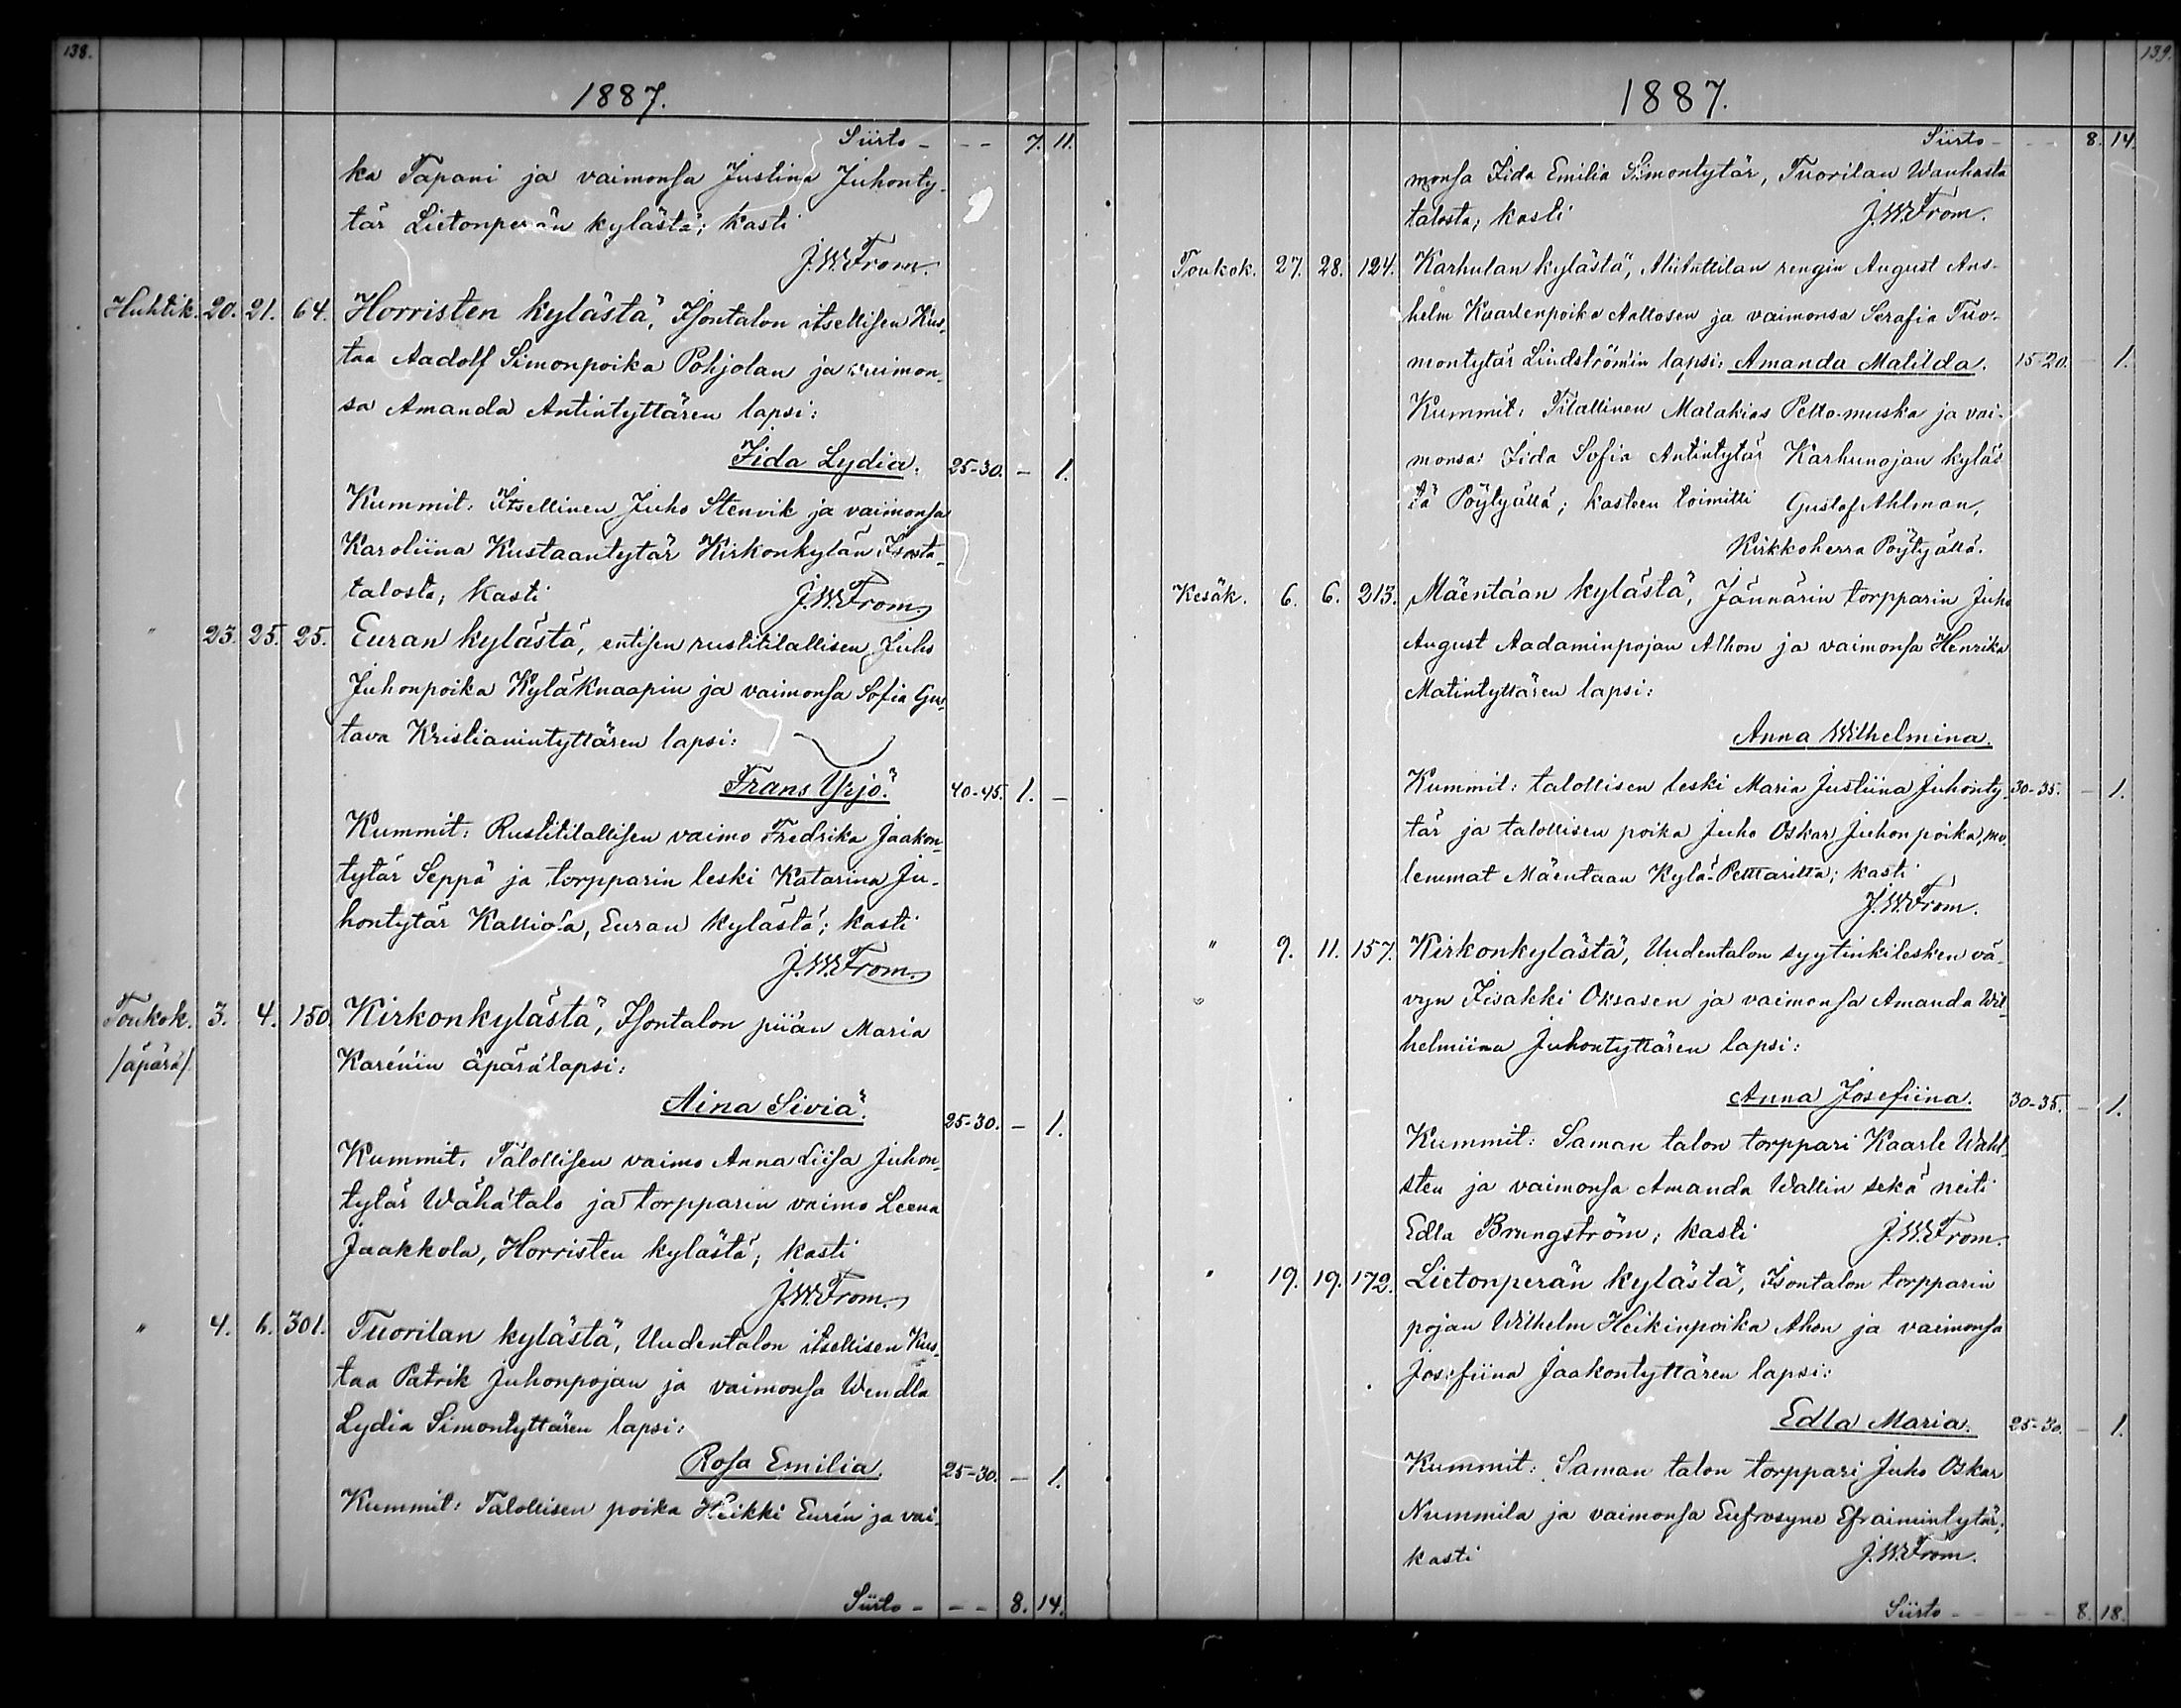 138.
1887.
Siirto - - - 7. 11.
ka Tapani ja vaimonsa Justina Juhonty-
tär Lietonperän kylästä; kasti
J.W.From.
Huhtik. 20. 21. 64. Horristen kylästä, Isontalon itsellisen Kus-
taa Aadolf Simonpoika Pohjolan ja vaimon-
sa Amanda Antintyttären lapsi:
Iida Lydia. 25-30. - 1.
Kummit: Itsellinen Juho Stenvik ja vaimonsa
Karoliina Kustaantytär Kirkonkylän Isosta-
talosta; kasti J.W.From.
" 23. 25. 25. Euran kylästä, entisen rustitilallisen Juho
Juhonpoika Kyläknaapin ja vaimonsa Sofia Gus-
tava Kristianintyttären lapsi:
Frans Yrjö. 40-45. 1. -
Kummit: Rustitilallisen vaimo Fredrika Jaakon-
tytär Seppä ja torpparin leski Katarina Ju-
hontytär Kalliola, Euran kylästä; kasti
J.W.From.
Toukok. 3. 4. 150. Kirkonkylästä, Isontalon piian Maria
/äpärä/ Karénin äpärälapsi:
Aina Siviä. 25-30. - 1.
Kummit: Talollisen vaimo Anna Liisa Juhon-
tytär Wähätalo ja torpparin vaimo Leena
Jaakkola, Horristen kylästä; kasti
J.W.From.
" 4. 6. 301. Tuorilan kylästä, Uudentalon itsellisen Kus-
taa Patrik Juhonpojan ja vaimonsa Wendla
Lydia Simontyttären lapsi:
Rosa Emilia. 25-30. - 1.
Kummit: Talollisen poika Heikki Eurén ja vai-
Siirto - - - 8. 14.
139.
1887.
Siirto - - - 8. 14.
monsa Iida Emilia Simontytär, Tuorilan Wanhasta
talosta; kasti J.W.From.
Toukok. 27. 28. 124. Karhulan kylästä, rengin August Ans-
helm Kaarlenpoika Aaltosen ja vaimonsa Serafia Tuo-
montytär Lindströmin lapsi: Amanda Matilda. 15-20. - 1.
Kummit: Tilallinen Malakias Pelto-muska ja vai-
monsa Iida Sofia Antintytär Karhunojan kyläs
tä Pöytyällä; kasteen toimitti Gustaf Ahlman,
Kirkkoherra Pöytyällä.
Kesäk. 6. 6. 213. Mäentaan kylästä, Jännärin torpparin Juho
August Aadaminpojan Alhon ja vaimonsa Henrika
Matintyttären lapsi:
Anna Wilhelmina.
Kummit: talollisen leski Maria Justiina Juhonty- 30-35. - 1.
tär ja talollisen poika Juho Oskar Juhonpoika, mo-
lemmat Mäentaan Kylä-Pettarilta; kasti
J.W.From.
" 9. 11. 157. Kirkonkylästä, Uudentalon syytinkilesken vä-
vyn Iisakki Oksasen ja vaimonsa Amanda Wil-
helmiina Juhontyttären lapsi:
Anna Josefiina. 30-35. - 1.
Kummit: Saman talon torppari Kaarle Wahl-
sten ja vaimonsa Amanda Wallin sekä neiti
Edla Brungström; kasti J.W.From.
" 19. 19. 172. Lietonperän kylästä, Isontalon torpparin
pojan Wilhelm Heikinpoika Ahon ja vaimonsa
Josefiina Jaakontyttären lapsi:
Edla Maria. 25-30. - 1.
Kummit: Saman talon torppari Juho Oskar
Nummila ja vaimonsa Eufrosyne Efraimintytär;
kasti J.W.From.
Siirto - - - 8. 18.